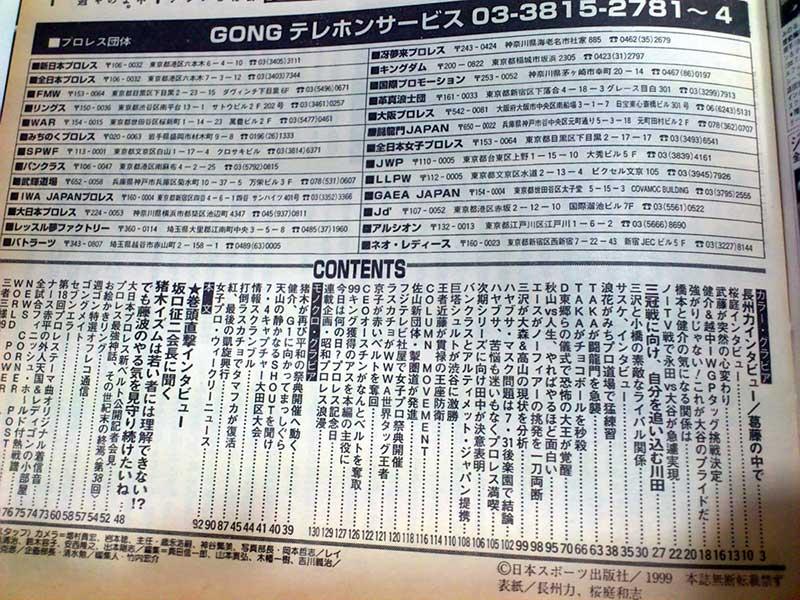 GONG テレホンサービス 03-3815-2781〜4
■プロレス団体
■新日本プロレス 〒106-0032 東京都港区六本木6-4-10 ☎03(3405)3111
■全日本プロレス 〒106-0032 東京都港区六本木7-3-12 ☎03(3403)7344
■FMW 〒153-0064 東京都目黒区下目黒2-23-15 ダヴィンチ下目黒6F ☎03(5496)0671
■リングス 〒150-0036 東京都渋谷区南平台13-1 サトウビル2F202号 ☎03(3461)0257
■WAR 〒154-0015 東京都世田谷区桜新町1-14-23 ☎03(5477)0461
■みちのくプロレス 〒020-0063 岩手県盛岡市材木町9-8 ☎0196(26)1333
■SPWF 〒113-0001 東京都文京区白山1-17-4 クロサキビル ☎03(3814)6371
■パンクラス 〒106-0047 東京都港区南麻布4-2-25 ☎03(5792)0815
■武輝道場 〒652-0058 兵庫県神戸市兵庫区菊水町10-37-5 万栄ビル3F ☎078(531)0607
■IWA JAPANプロレス 〒160-0004 東京都新宿区四谷4-6-1 四谷サンハイツ401号 ☎03(3352)3366
■大日本プロレス 〒224-0053 神奈川県横浜市都筑区池辺町4347 ☎045(937)0811
■レッスル夢ファクトリー 〒360-0114 埼玉県大里郡江南町中央3-5-8 ☎0485(37)1960
■バトラーツ 〒343-0807 埼玉県越谷市赤山町2-158-1 ☎0489(63)0005
■冴夢来プロレス 〒243-0424 神奈川県海老名市社家885 ☎0462(35)2679
■キングダム 〒200-0822 東京都稲城市坂浜2305 ☎0423(31)2797
■国際プロモーション 〒253-0052 神奈川県茅ヶ崎市幸町20-14 ☎0467(86)0197
■革真浪士団 〒161-0033 東京都新宿区下落合4-18-3 グレース目白301 ☎03(3299)7913
■大阪プロレス 〒542-0081 大阪府大阪市中央区南船場3-1-7 日宝東心斎橋ビル301号 ☎06(6243)5131
■闘龍門JAPAN 〒650-0022 兵庫県神戸市中央区元町通り5-3-18 元町田村ビル2F ☎078(362)0707
■全日本女子プロレス 〒153-0064 東京都目黒区下目黒2-17-17 ☎03(3493)6541
■JWP 〒110-0005 東京都台東区上野1-15-10 大秀ビル5F ☎03(3839)4161
■LLPW 〒112-0005 東京都文京区水道2-13-4 ピクセル文京105 ☎03(3945)7926
■GAEA JAPAN 〒154-0004 東京都世田谷区太子堂5-15-3 COVAMCC BUILDING ☎03(3795)2555
■Jd' 〒107-0052 東京都港区赤坂2-12-10 国際溜池ビル7F ☎03(5561)0522
■アルシオン 〒132-0013 東京都江戸川区江戸川1-6-2 ☎03(5666)8690
■ネオ・レディース 〒160-0023 東京都新宿区西新宿7-22-43 新宿JECビル5F ☎03(3227)8144
CONTENTS
カラー・グラビア
長州力インタビュー/葛藤の中で 3
桜庭インタビュー 10
武藤が突然の心変わり 13
健介&越中・IWGPタッグ挑戦決定 16
強がりじゃない!これが大谷のプライドだ 18
橋本と健介の気になる関係は 20
ノーTV戦で永田vs大谷が急遽実現 22
三冠戦に向け、自分を追い込む川田 27
三沢と小橋の素敵なライバル関係 30
サスケ、インタビュー 35
浪花がみちプロ道場で猛練習 38
TAKAが闘龍門を急襲 63
TAKAがチョコボールを秒殺 66
D東郷らの儀式で恐怖の大王が覚醒 70
秋山vs人生、やればやるほど面白い 95
エースがノーフィアーの挑発を一刀両断 98
三沢が大森&高山の現状を分析 99
ハヤブサ・マスク問題は7・31後楽園で結論 102
ハヤブサ、苦悩も迷いもなくプロレス満喫 105
次期シリーズに向け田中が決意表明 106
パンクラスとアルティメット・ジャパン提携 108
巨塔シュルトが渋谷に激勝 110
COLUMN MOVEMENT
王者近藤が貫禄の王座防衛
佐山新団体・掣圏道が発進
フジテレビ社屋で女子プロ祭典開催
デスカチョがWWWA世界タッグ王者 120
CEOアジャがなんとベルトを奪取 121
京子が赤いベルトを奪回 122
99キング獲得のプランを本編の主役に 126
今日は何の日?プロレス記念日 127
連載企画・昭和プロレス浪漫 129
130
モノクロ・グラビア
猪木が再び平和の祭典開催へ動く 39
健介、G1に向かってまっしぐら 40
天山の静かなるSHOUTを聞け 41
7・4スキャプチャー大田区大会 44
情報ステーション 45
打倒ラスカチョでタマフカが復活 87
紅、最後の凱旋興行 90
女子プロ・ウィークリーニュース 92
本文
★巻頭直撃インタビュー
坂口征二会長に聞く
猪木イズムは若い者には理解できない!?
でも藤波のやる気を見守り続けたいね 48
大日本プロレス・新ベルト公開記者会見 52
プロレス最強神話、その世紀末の終焉(第38回) 54
お絵かきリングサイド 57
週ゴン特選オフレコ通信 58
ゴングメイト 60
第18回テレコラー 73
ナース・テーマ曲オリジナル着信音 74
全試合フィニッシュ・ホールド付熱戦譜 75
NEWS CORNER 76
WORLD POWER POST
スタッフ/カメラ=
©日本スポーツ出版社/1999 本誌無断転載禁ず
表紙/長州力、桜庭和志